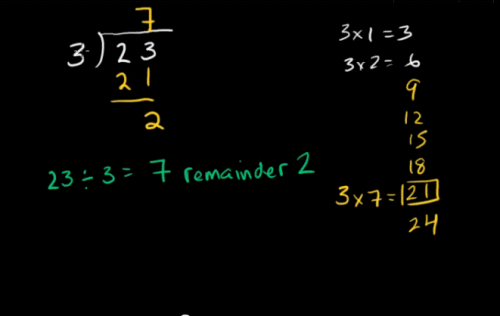 7
3 ) 23
21
2
23 ÷ 3 = 7 remainder 2
3 x 1 = 3
3 x 2 = 6
9
12
15
18
3 x 7 = 21
24